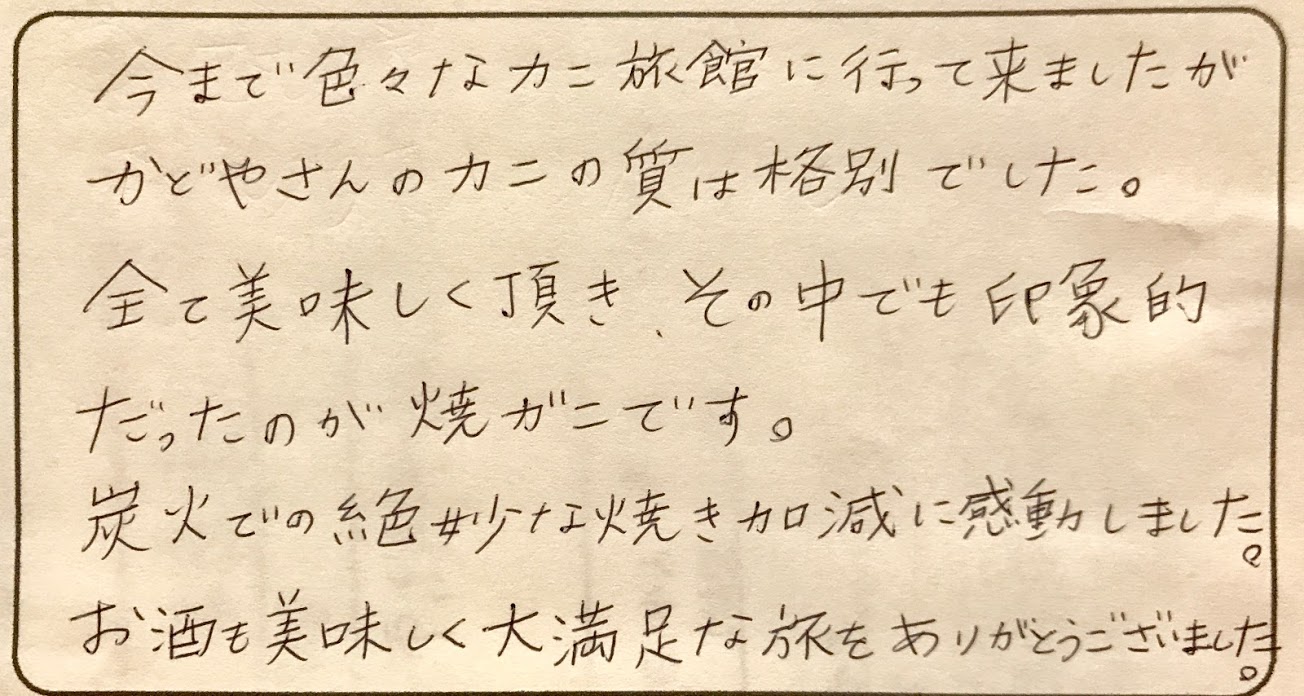 今まで色々なカニ旅館に行って来ましたが
かどやさんのカニの質は格別でした。
全て美味しく頂き、その中でも印象的
だったのが焼ガニです。
炭火での絶妙な焼き加減に感動しました。
お酒も美味しく大満足な旅をありがとうございました。